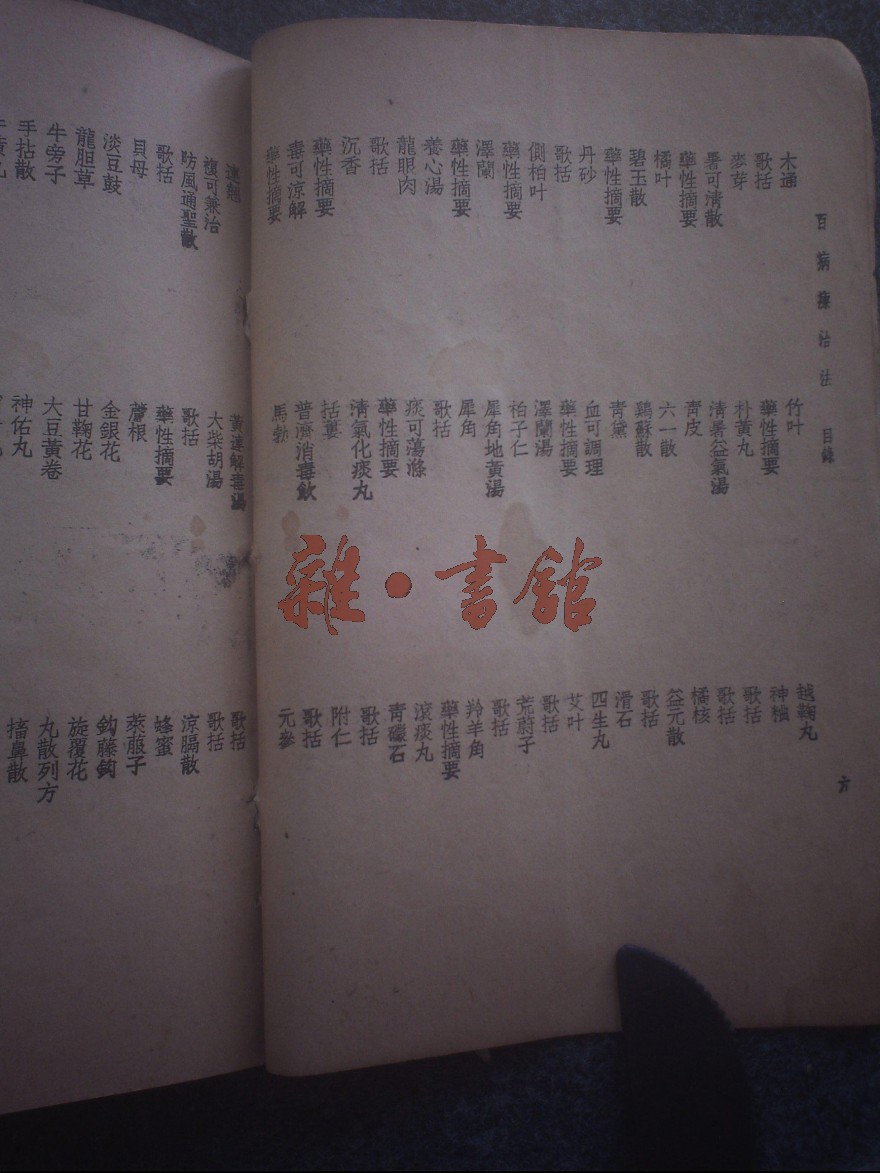 百病療治法 目錄
六
木通
歌括
麥芽
暑可清散
藥性摘要
橘叶
碧玉散
藥性摘要
丹砂
歌括
側柏叶
藥性摘要
澤蘭
養心湯
藥性摘要
龍眼肉
歌括
沉香
藥性摘要
毒可涼解
藥性摘要
竹叶
藥性摘要
朴黃丸
清暑益氣湯
青皮
六一散
鷄蘇散
青黛
血可調理
藥性摘要
澤蘭湯
柏子仁
犀角地黃湯
犀角
歌括
痰可蕩滌
藥性摘要
清氣化痰丸
括蔞
普濟消毒飲
馬勃
越鞠丸
神粬
歌括
歌括
橘核
益元散
歌括
滑石
四生丸
艾叶
歌括
茺蔚子
歌括
羚羊角
藥性摘要
滾痰丸
青礞石
歌括
附仁
歌括
元參
連翹
複可兼治
防風通聖散
歌括
貝母
淡豆鼓
龍胆草
牛旁子
手拈散
黃連解毒湯
大柴胡湯
歌括
藥性摘要
蘆根
金銀花
甘鞠花
大豆黃卷
神佑丸
歌括
歌括
涼膈散
蜂蜜
萊服子
鈎藤鈎
旋覆花
丸散列方
搐鼻散
雜·書館